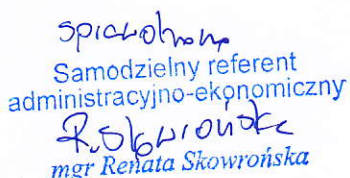 Samodzielny referent
administracyjno-ekonomiczny
R. Skowrońska
mgr Renata Skowrońska